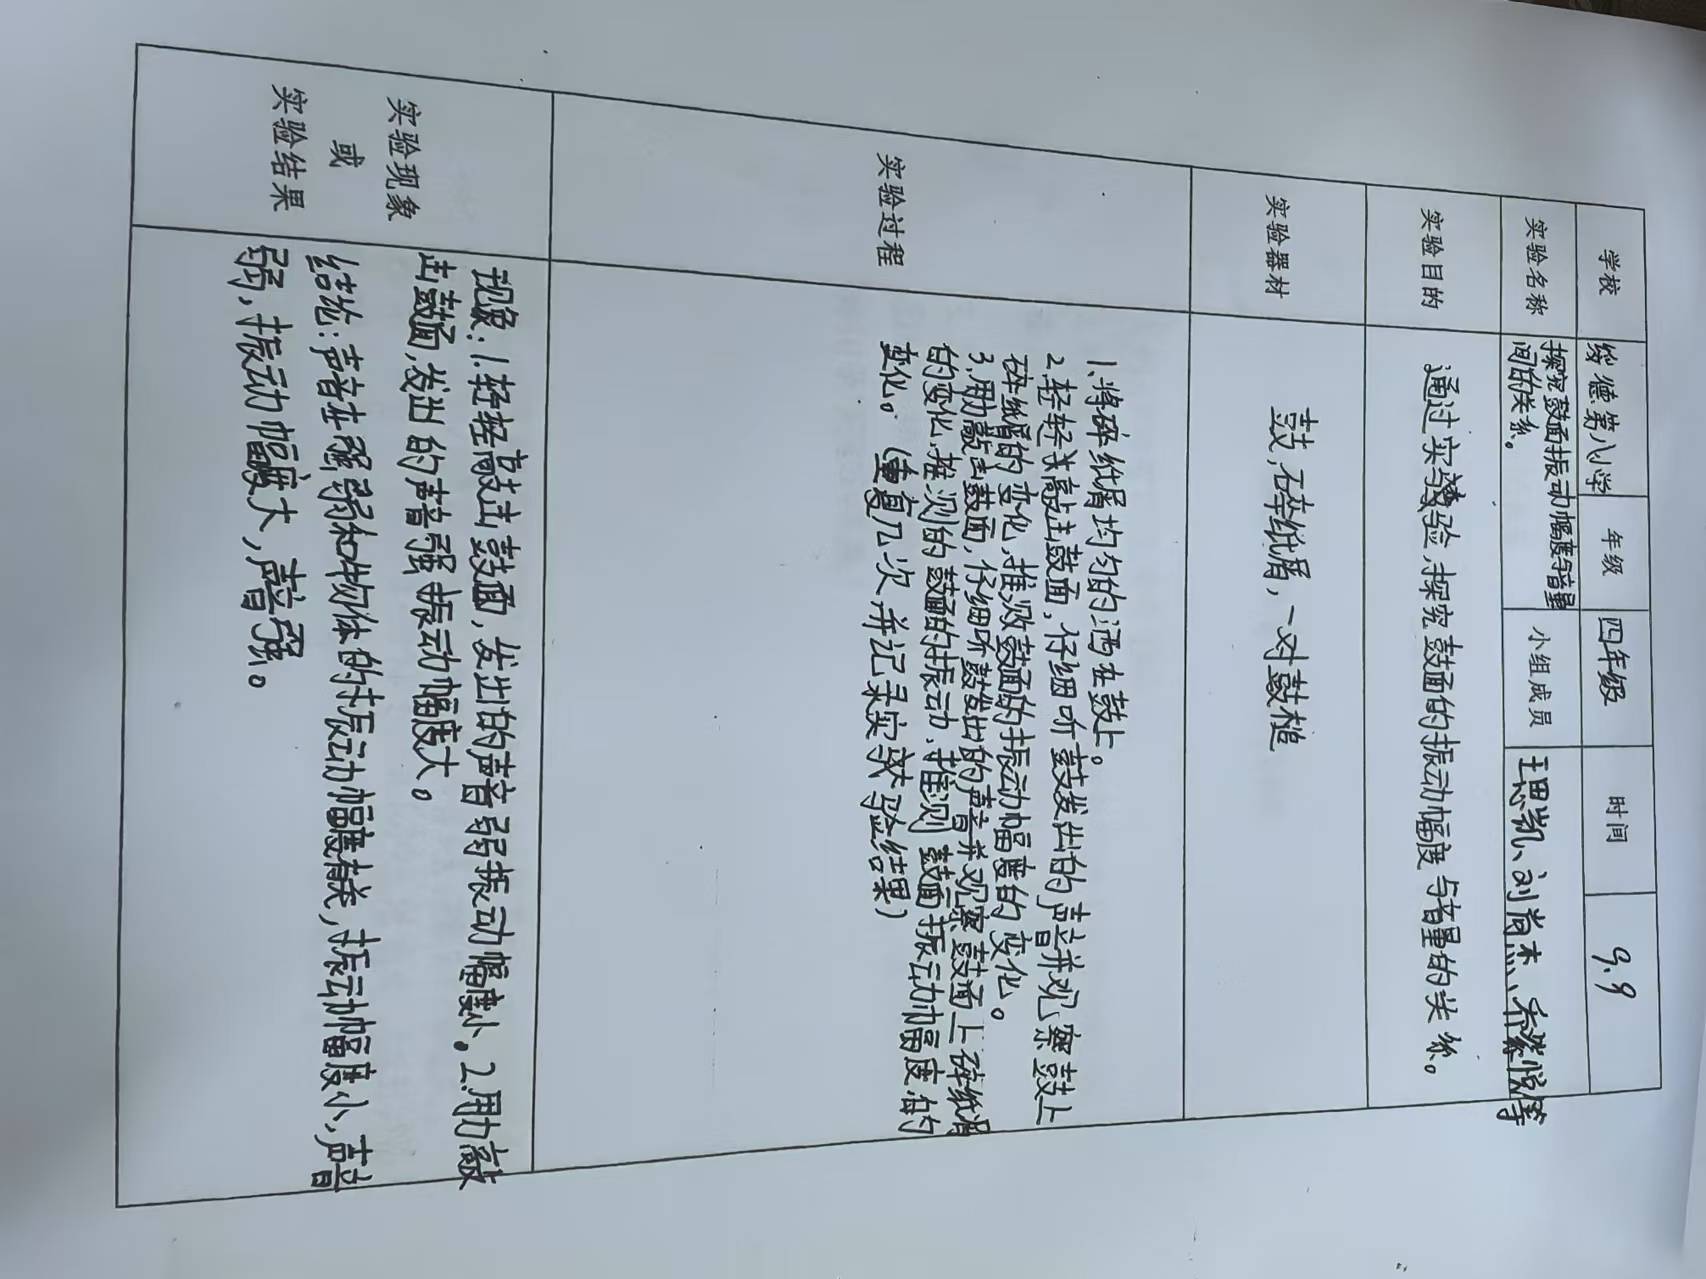 学校 绥德第八小学 年级 四年级 时间 9.9
实验名称 探究鼓面振动幅度与音量
间的关系。
小组成员 王思凯、刘尚杰、乔梁悦等
实验目的 通过实验,探究鼓面的振动幅度与音量的关系。
实验器材 鼓,碎纸屑,一对鼓槌
实验过程
1.将碎纸屑均匀的洒在鼓上。
2.轻轻敲击鼓面,仔细听鼓发出的声音并观察鼓上
碎纸屑的变化,推测鼓面的振动幅度的变化。
3.用力敲击鼓面,仔细听鼓发出的声音并观察鼓面上碎纸屑
的变化,推测的鼓面的振动,推测鼓面振动幅度的
变化。(重复几次,并记录实验结果)
实验现象
或
实验结果
现象:1.轻轻敲击鼓面,发出的声音弱振动幅度小。2.用力敲
击鼓面,发出的声音强振动幅度大。
结论:声音在强弱和物体的振动幅度有关,振动幅度小,声音
弱,振动幅度大,声音强。